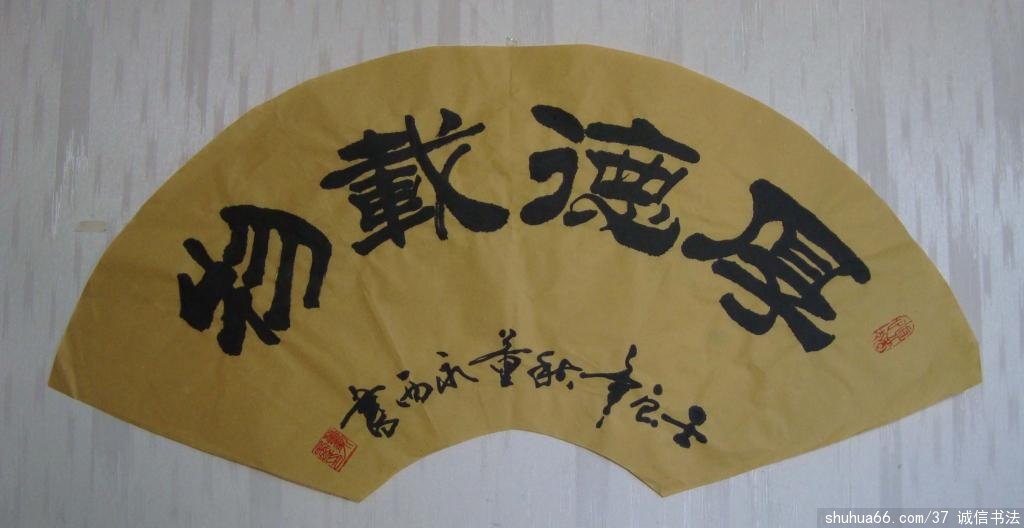 厚德載物
壬辰年秋董永西書
shuhua66.com/37 诚信书法